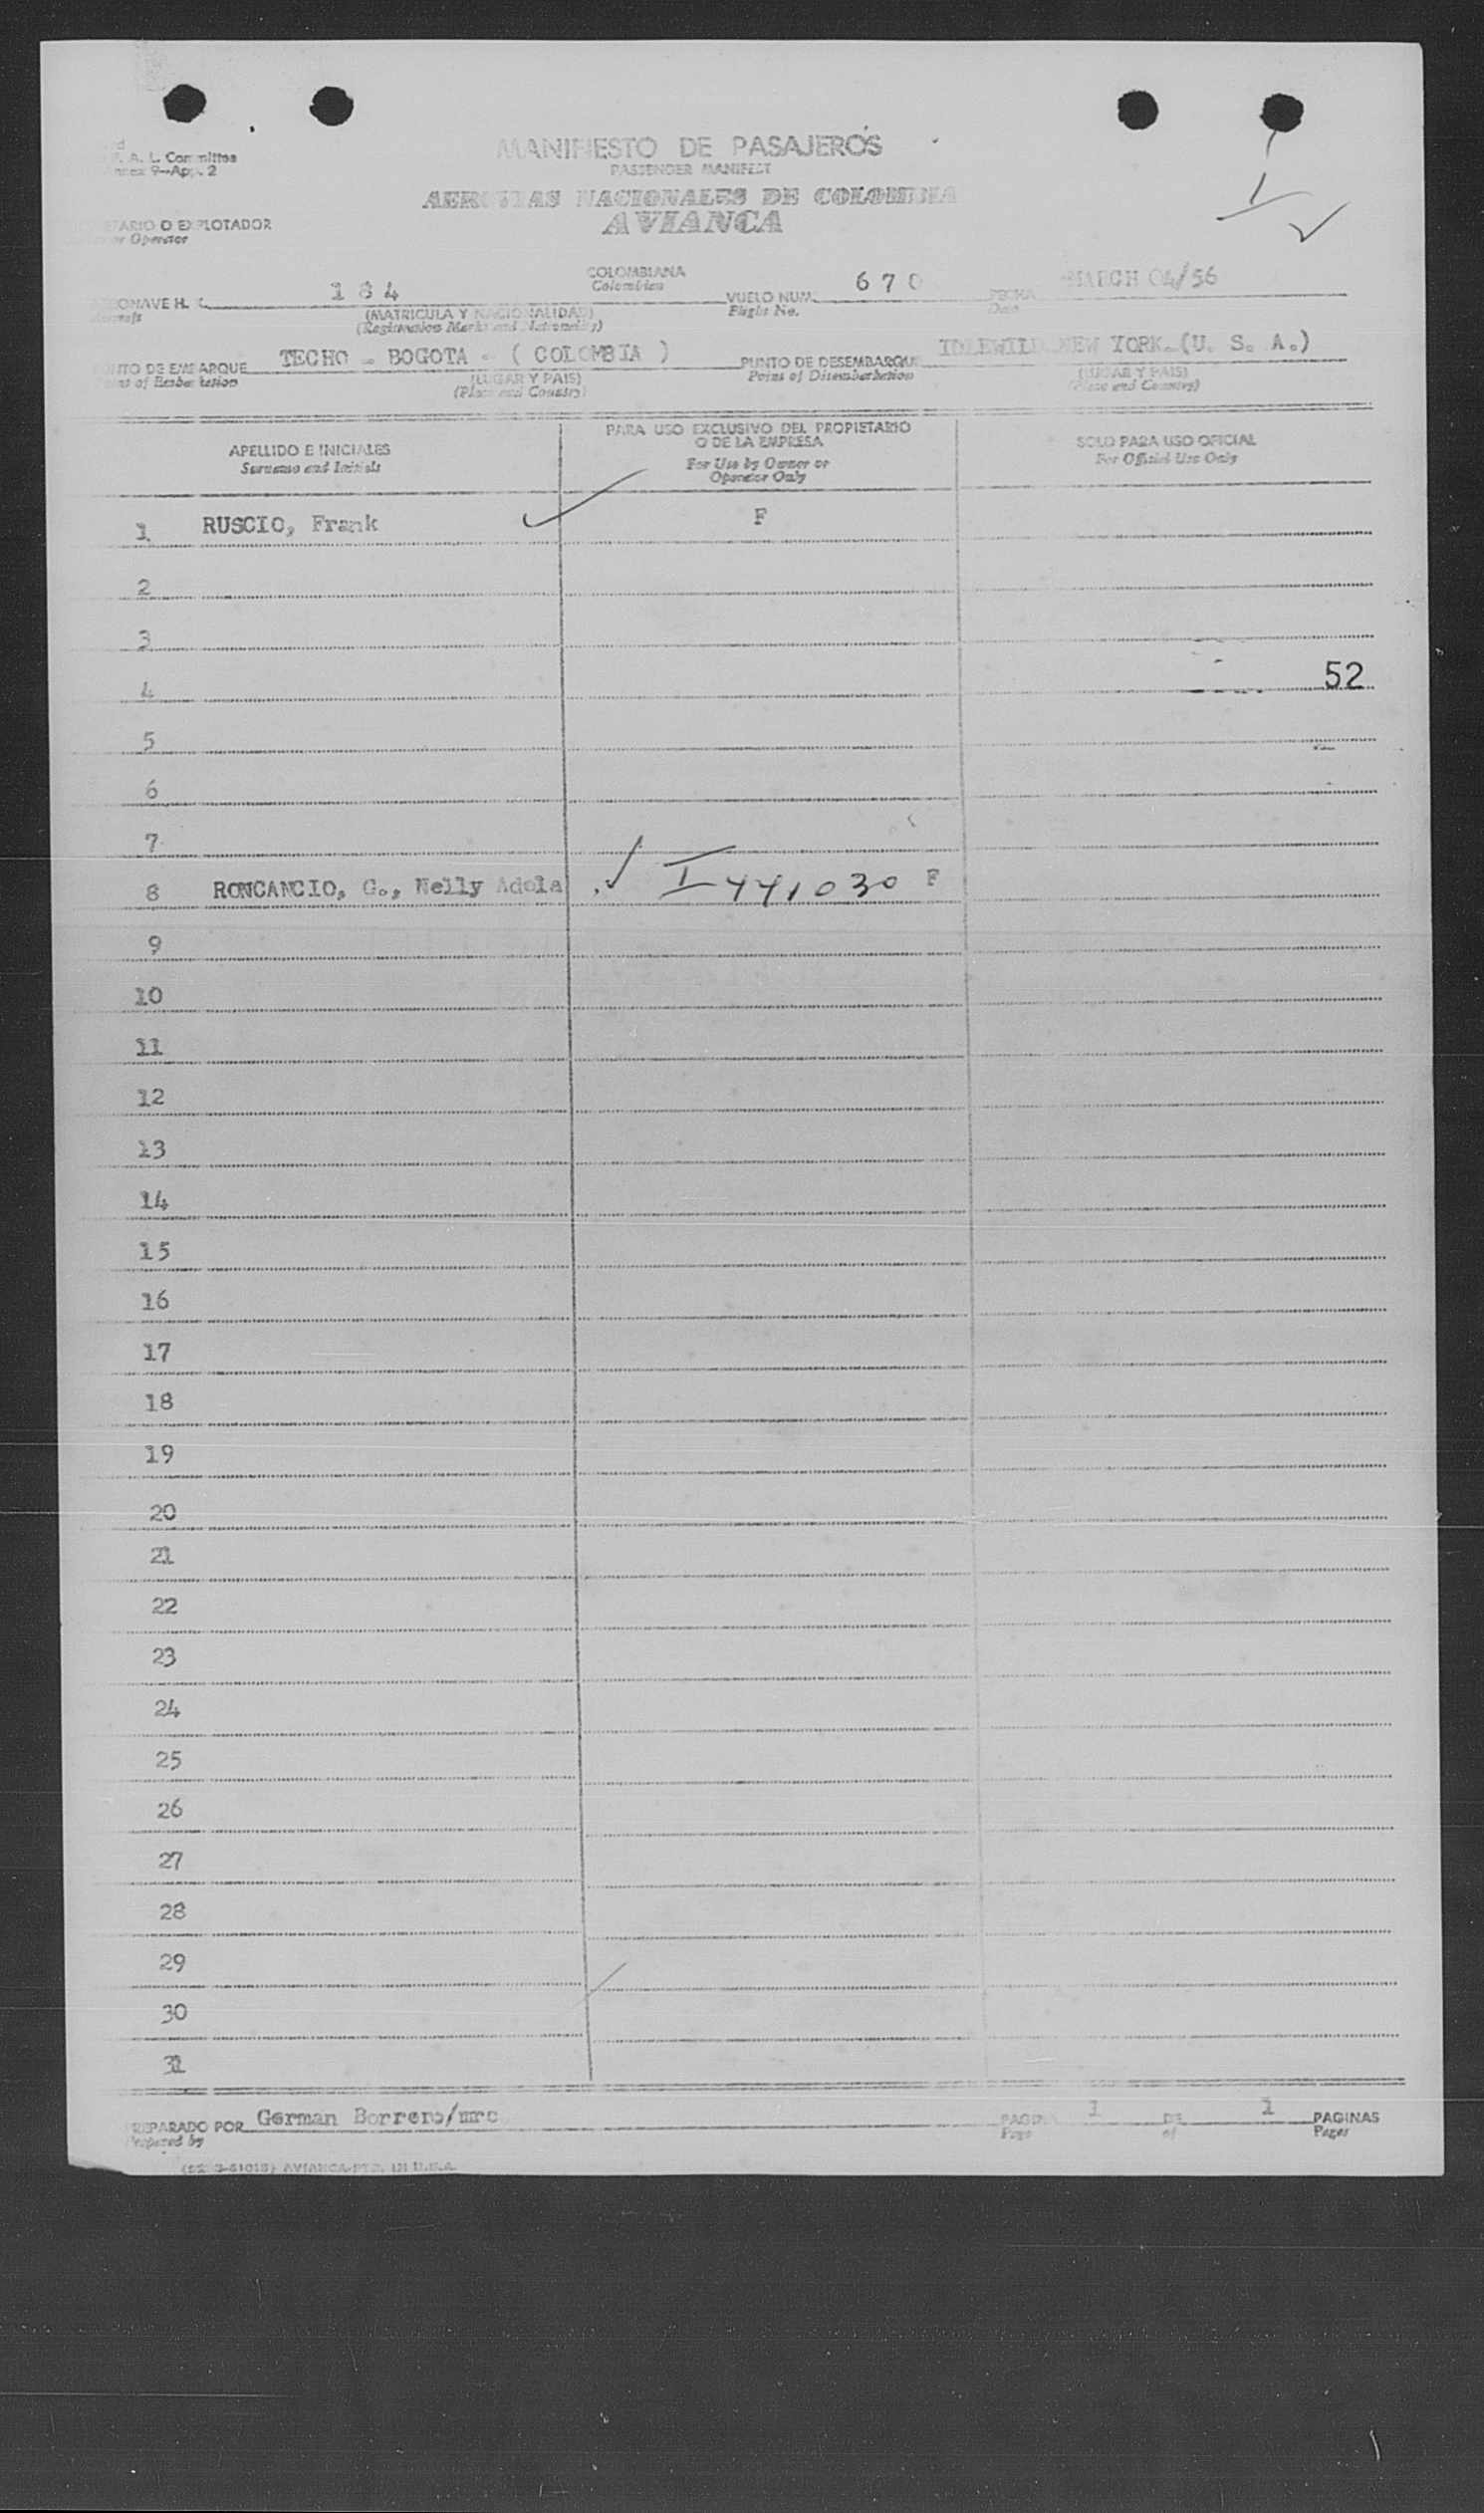 F. A. L. Committee
Annex 9-App. 2
MANIFIESTO DE PASAJEROS
PASSENGER MANIFEST
AEROVIAS NACIONALES DE COLOMBIA
AVIANCA
O EXPLOTADOR
or Operator
H. K. 184 COLOMBIANA
Colombian
(MATRICULA Y NACIONALIDAD)
(Registration Marks and Nationality)
VUELO NUM. 670
Flight No.
FECHA MARCH 04/56
Date
DE EMBARQUE TECHO - BOGOTA - ( COLOMBIA )
of Embarkation
(LUGAR Y PAIS)
(Place and Country)
PUNTO DE DESEMBARQUE IDLEWILD NEW YORK. (U. S. A.)
Point of Disembarkation
(LUGAR Y PAIS)
(Place and Country)
APELLIDO E INICIALES
Surname and Initials
PARA USO EXCLUSIVO DEL PROPIETARIO
O DE LA EMPRESA
For Use by Owner or
Operator Only
SOLO PARA USO OFICIAL
For Official Use Only
1 RUSCIO, Frank F
2
3
4 52
5
6
7
8 RONCANCIO, G., Nelly Adela I 441030 F
9
10
11
12
13
14
15
16
17
18
19
20
21
22
23
24
25
26
27
28
29
30
31
PREPARADO POR German Borrero/mrc
Prepared by
PAGINA 1 DE 1 PAGINAS
Page of Pages